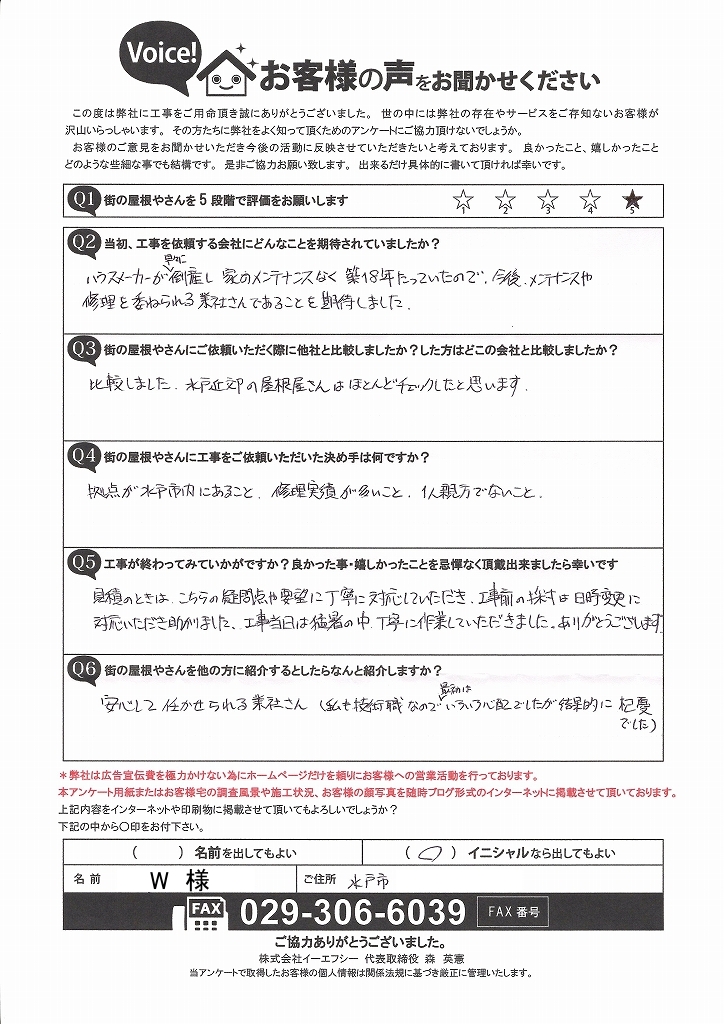 Voice!
お客様の声をお聞かせください
この度は弊社に工事をご用命頂き誠にありがとうございました。 世の中には弊社の存在やサービスをご存知ないお客様が
沢山いらっしゃいます。 その方たちに弊社をよく知って頂くためのアンケートにご協力頂けないでしょうか。
お客様のご意見をお聞かせいただき今後の活動に反映させていただきたいと考えております。 良かったこと、嬉しかったこと
どのような些細な事でも結構です。 是非ご協力お願い致します。 出来るだけ具体的に書いて頂ければ幸いです。
Q1 街の屋根やさんを 5 段階で評価をお願いします
1 2 3 4 5
Q2 当初、工事を依頼する会社にどんなことを期待されていましたか？
早々に
ハウスメーカーが倒産し 家のメンテナンスなく 築18年たっていたので、今後、メンテナンスや
修理を委ねられる業社さんであることを期待しました.
Q3 街の屋根やさんにご依頼いただく際に他社と比較しましたか？した方はどこの会社と比較しましたか？
比較しました. 水戸近郊の屋根屋さんはほとんどチェックしたと思います.
Q4 街の屋根やさんに工事をご依頼いただいた決め手は何ですか？
拠点が水戸市内にあること、修理実績が多いこと、1人親方でないこと.
Q5 工事が終わってみていかがですか？良かった事・嬉しかったことを忌憚なく頂戴出来ましたら幸いです
見積のときは、こちらの疑問点や要望に丁寧に対応していただき、工事前の採寸は日時変更に
対応いただき助かりました、工事当日は猛暑の中、丁寧に作業していただきました。ありがとうございます
Q6 街の屋根やさんを他の方に紹介するとしたらなんと紹介しますか？
最初は
安心して任かせられる業社さん (私も技術職なのでいろいろ心配でしたが結果的に 杞憂
でした)
＊弊社は広告宣伝費を極力かけない為にホームページだけを頼りにお客様への営業活動を行っております。
本アンケート用紙またはお客様宅の調査風景や施工状況、お客様の顔写真を随時ブログ形式のインターネットに掲載させて頂いております。
上記内容をインターネットや印刷物に掲載させて頂いてもよろしいでしょうか？
下記の中から〇印をお付下さい。
（ ）名前を出してもよい （ ○ ）イニシャルなら出してもよい
名 前 W 様 ご住所 水戸市
FAX 029-306-6039 FAX 番号
ご協力ありがとうございました。
株式会社イーエフシー 代表取締役 森 英憲
当アンケートで取得したお客様の個人情報は関係法規に基づき厳正に管理いたします。